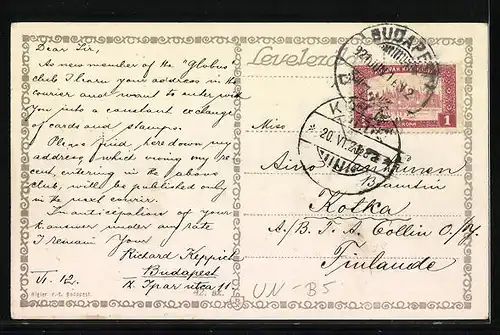 Dear Sir,
As new member of the "Globus"
club I learn your address in the
courier and want to enter with
you into a constant exchange
of cards and stamps.
Please find here down my
address, which owing my re
cent entering in the above
club, will be published only
in the next courier.
In anticipations of your
answer under any rate
I remain Your
Richard Keppich
Budapest
X. Ipar utca 11
VI. 12.
Levelező
BUDAPEST
MAGYAR KIR
1
KOTKA
20.VI.2
Miss
Aino
Kotka
A/B. T. A. Collin O./Y.
Finlande
UN-B5